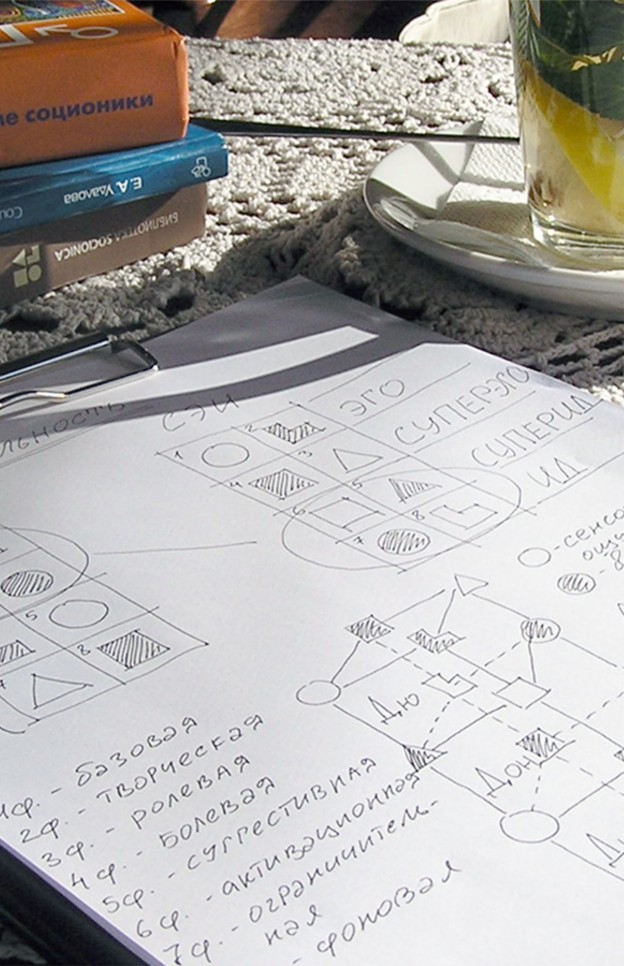 ие соционики
Е. А. Удалова
Соци
БИБЛИОТЕКА SOCIONICA
ЛЬНОСТЬ
СЭИ
1 2 ЭГО
4 3 СУПЕРЭГО
6 5 СУПЕРИД
7 8 ИД
- сенсо
ощу
- д
5
8
7
Дю
Дон
Д
1ф. - базовая
2ф. - творческая
3ф. - ролевая
4ф. - болевая
5ф. - суггестивная
6ф. - активационная
7ф. - ограничитель-
ная
- фоновая